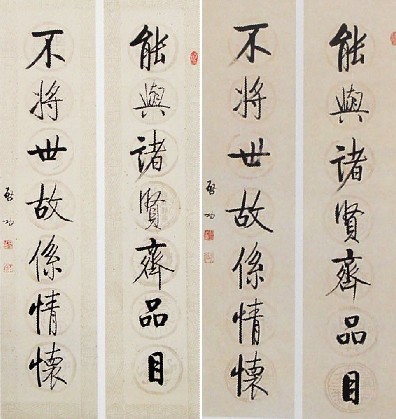 能與諸賢齊品目
不將世故係情懷
啓功
能與諸賢齊品目
不將世故係情懷
啓功